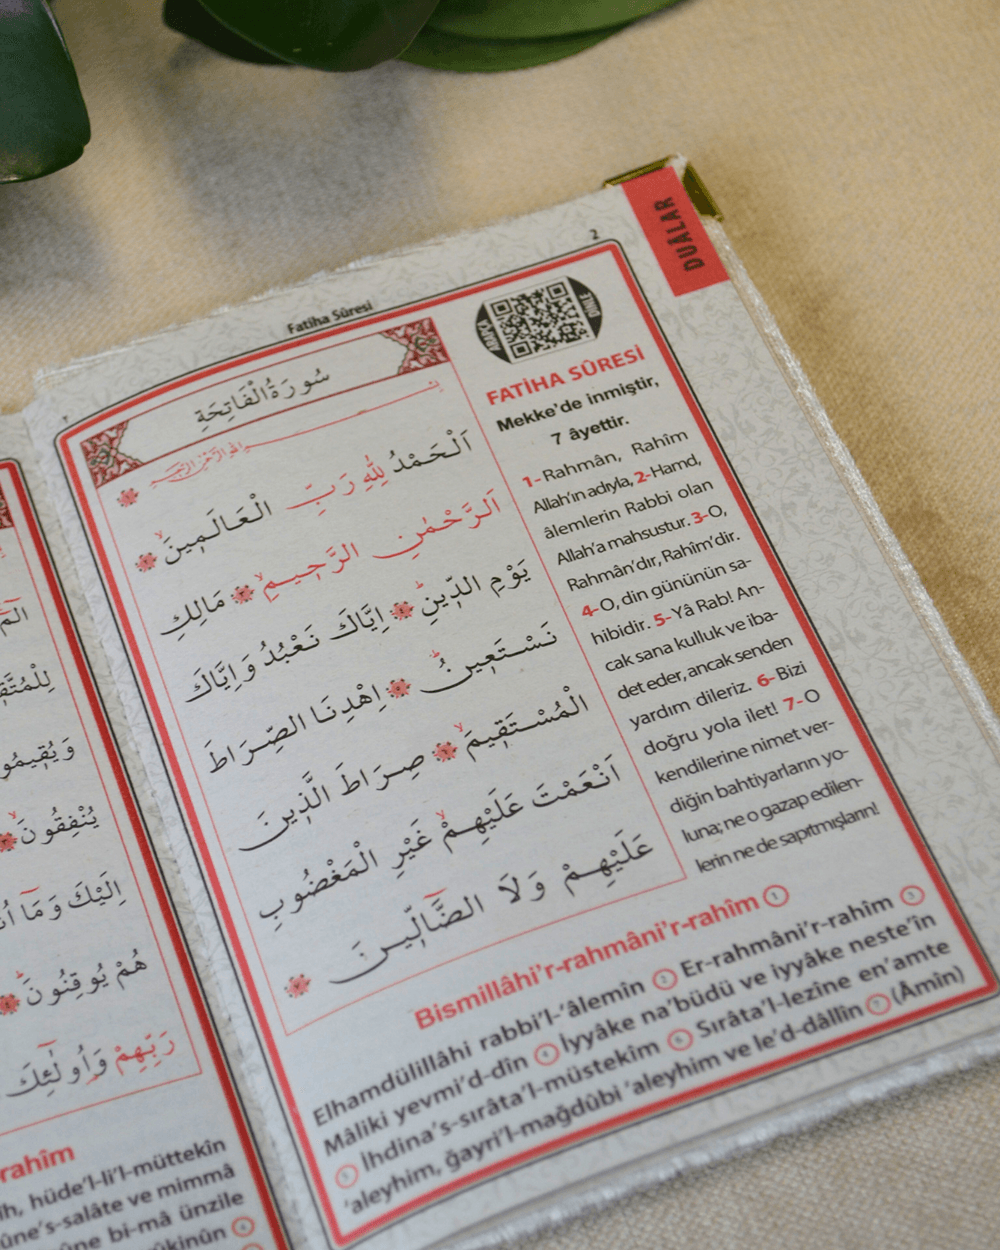 DUÂLAR
2
Fatiha Sûresi
سُورَةُ الْفَاتِحَةِ
اَلْحَمْدُ لِلّٰهِ رَبِّ الْعَالَمٖينَۙ
اَلرَّحْمٰنِ الرَّحٖيمِۙ مَالِكِ
يَوْمِ الدّٖينِؕ اِيَّاكَ نَعْبُدُ وَاِيَّاكَ
نَسْتَعٖينُؕ اِهْدِنَا الصِّرَاطَ
الْمُسْتَقٖيمَۙ صِرَاطَ الَّذٖينَ
اَنْعَمْتَ عَلَيْهِمْۙ غَيْرِ الْمَغْضُوبِ
عَلَيْهِمْ وَلَا الضَّٓالّٖينَ
DİNLE
FATİHA SÛRESİ
Mekke'de inmiştir,
7 âyettir.
1- Rahmân, Rahîm
Allah'ın adıyla, 2- Hamd,
âlemlerin Rabbi olan
Allah'a mahsustur. 3- O,
Rahmân'dır, Rahîm'dir.
4- O, din gününün sa-
hibidir. 5- Yâ Rab! An-
cak sana kulluk ve iba-
det eder, ancak senden
yardım dileriz. 6- Bizi
doğru yola ilet! 7- O
kendilerine nimet ver-
diğin bahtiyarların yo-
luna; ne o gazap edilen-
lerin ne de sapıtmışların!
Bismillâhi'r-rahmâni'r-rahîm 1
Elhamdülillâhi rabbi'l-'âlemîn 2 Er-rahmâni'r-rahîm 3
Mâliki yevmi'd-dîn 4 İyyâke na'büdü ve iyyâke neste'în
5 İhdina's-sırâta'l-müstekîm 6 Sırâta'l-lezîne en'amte
'aleyhim, ğayri'l-mağdûbi 'aleyhim ve le'd-dâllîn 7 (Âmîn)
يُنْفِقُونَۙ
اِلَيْكَ وَمَٓا
هُمْ يُوقِنُونَؕ
رَبِّهِمْ وَاُولٰٓئِكَ
rahîm
hüde'l-li'l-müttekîn
ûne's-salâte ve mimmâ
bi-mâ ünzile